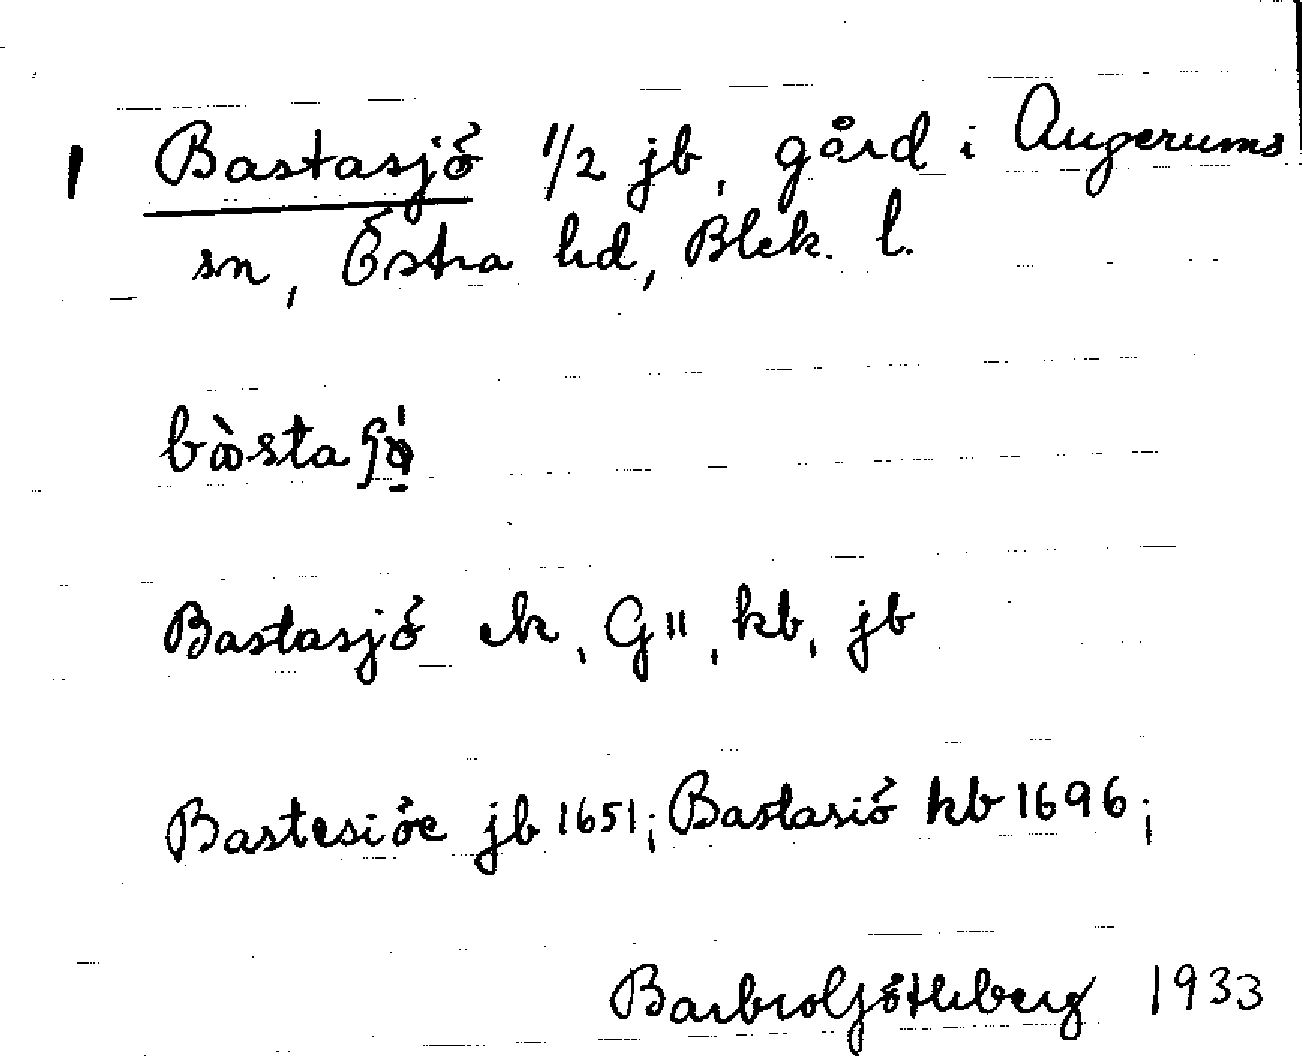 1 Bastasjö 1/2 jb, gård i Augerums
sn, Östra hd, Blek. l.
Bastasjö ek, G II, kb, jb
Bastesiöe jb 1651; Bastasiö kb 1696;
Barbro Götheberg 1933